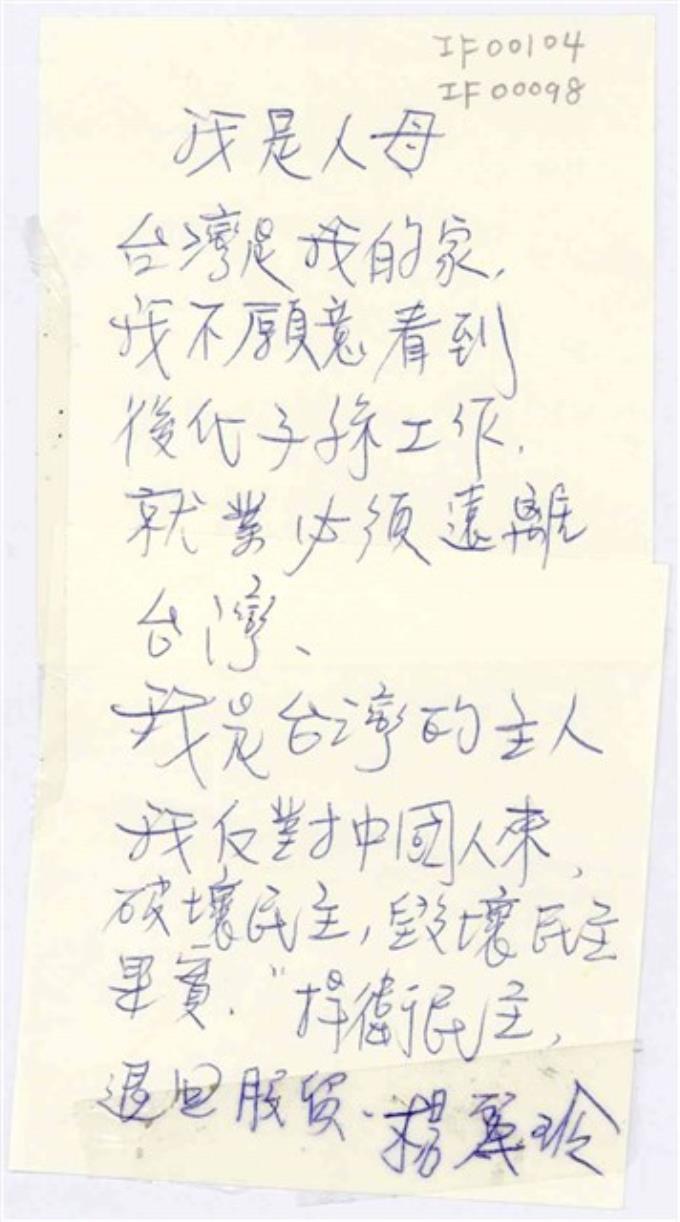 IF00104
IF00098
我是人母
台灣是我的家,
我不願意看到
後代子孫工作,
就業必須遠離
台灣、
我是台灣的主人
我反對中國人來,
破壞民主,毀壞民主
果實."捍衛民主,
退回服貿.楊麗玲